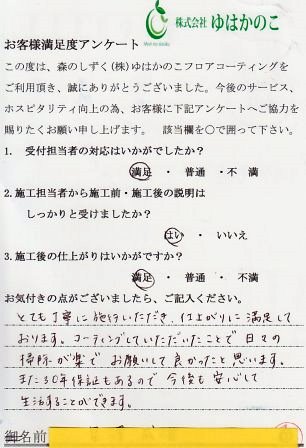 Mori no sizuku
株式会社 ゆはかのこ
お客様満足度アンケート
この度は、森のしずく(株)ゆはかのこフロアコーティングを
ご利用頂き、誠にありがとうございました。今後のサービス、
ホスピタリティ向上の為、お客様に下記アンケートへご協力を
賜りたくお願い申し上げます。 該当欄を〇で囲って下さい。
1. 受付担当者の対応はいかがでしたか?
満足 ・ 普通 ・ 不満
2. 施工担当者から施工前・施工後の説明は
しっかりと受けましたか?
はい ・ いいえ
3. 施工後の仕上がりはいかがですか?
満足 ・ 普通 ・ 不満
お気付きの点がございましたら、ご記入ください。
とても丁寧に施行いただき、仕上がりに満足して
おります。コーティングしていただいたことで日々の
掃除が楽で お願いして良かったと思います。
また30年保証もあるので 今後も 安心して
生活することができます。
御名前